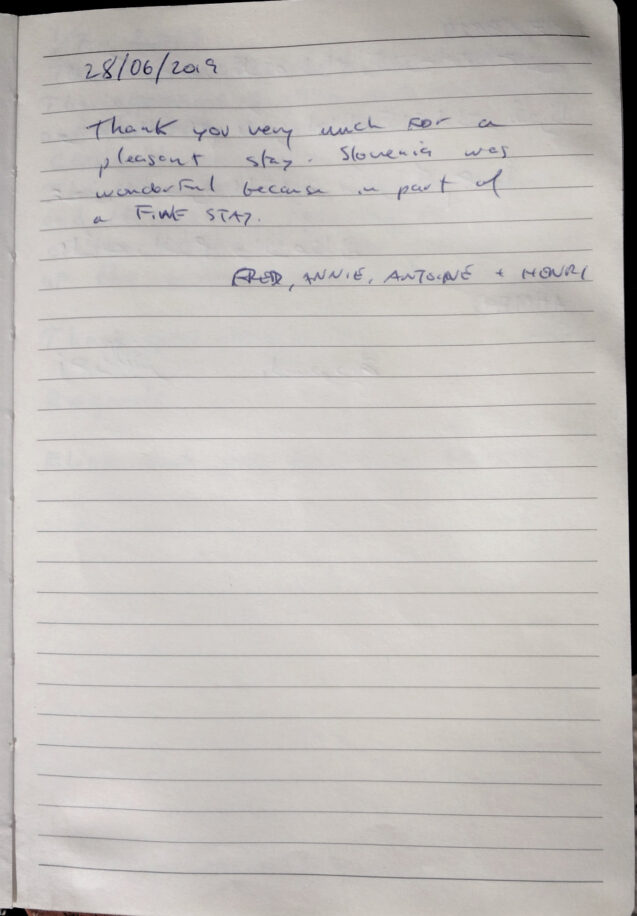 28/06/2019
Thank you very much FOR a
pleasant stay. Slovenia was
wonderful because in part of
a FINE STAY.
FRED, ANNIE, ANTOINE + HENRI